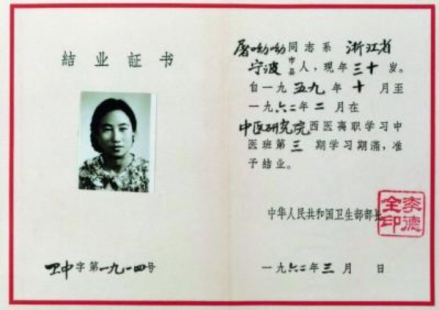 结业证书
卫中字第一九一四号
屠呦呦同志系 浙江省
宁波市县人，现年三十岁。
自一九五九年 十 月至
一九六二年二月在
中医研究院西医离职学习中
医班第三 期学习期满，准
予结业。
中华人民共和国卫生部部长
李德全印
一九六二年三月 日